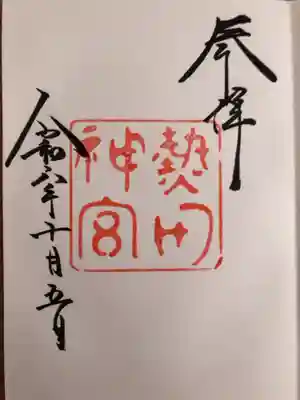 奉拝
熱田
神宮
令和六年十月五日